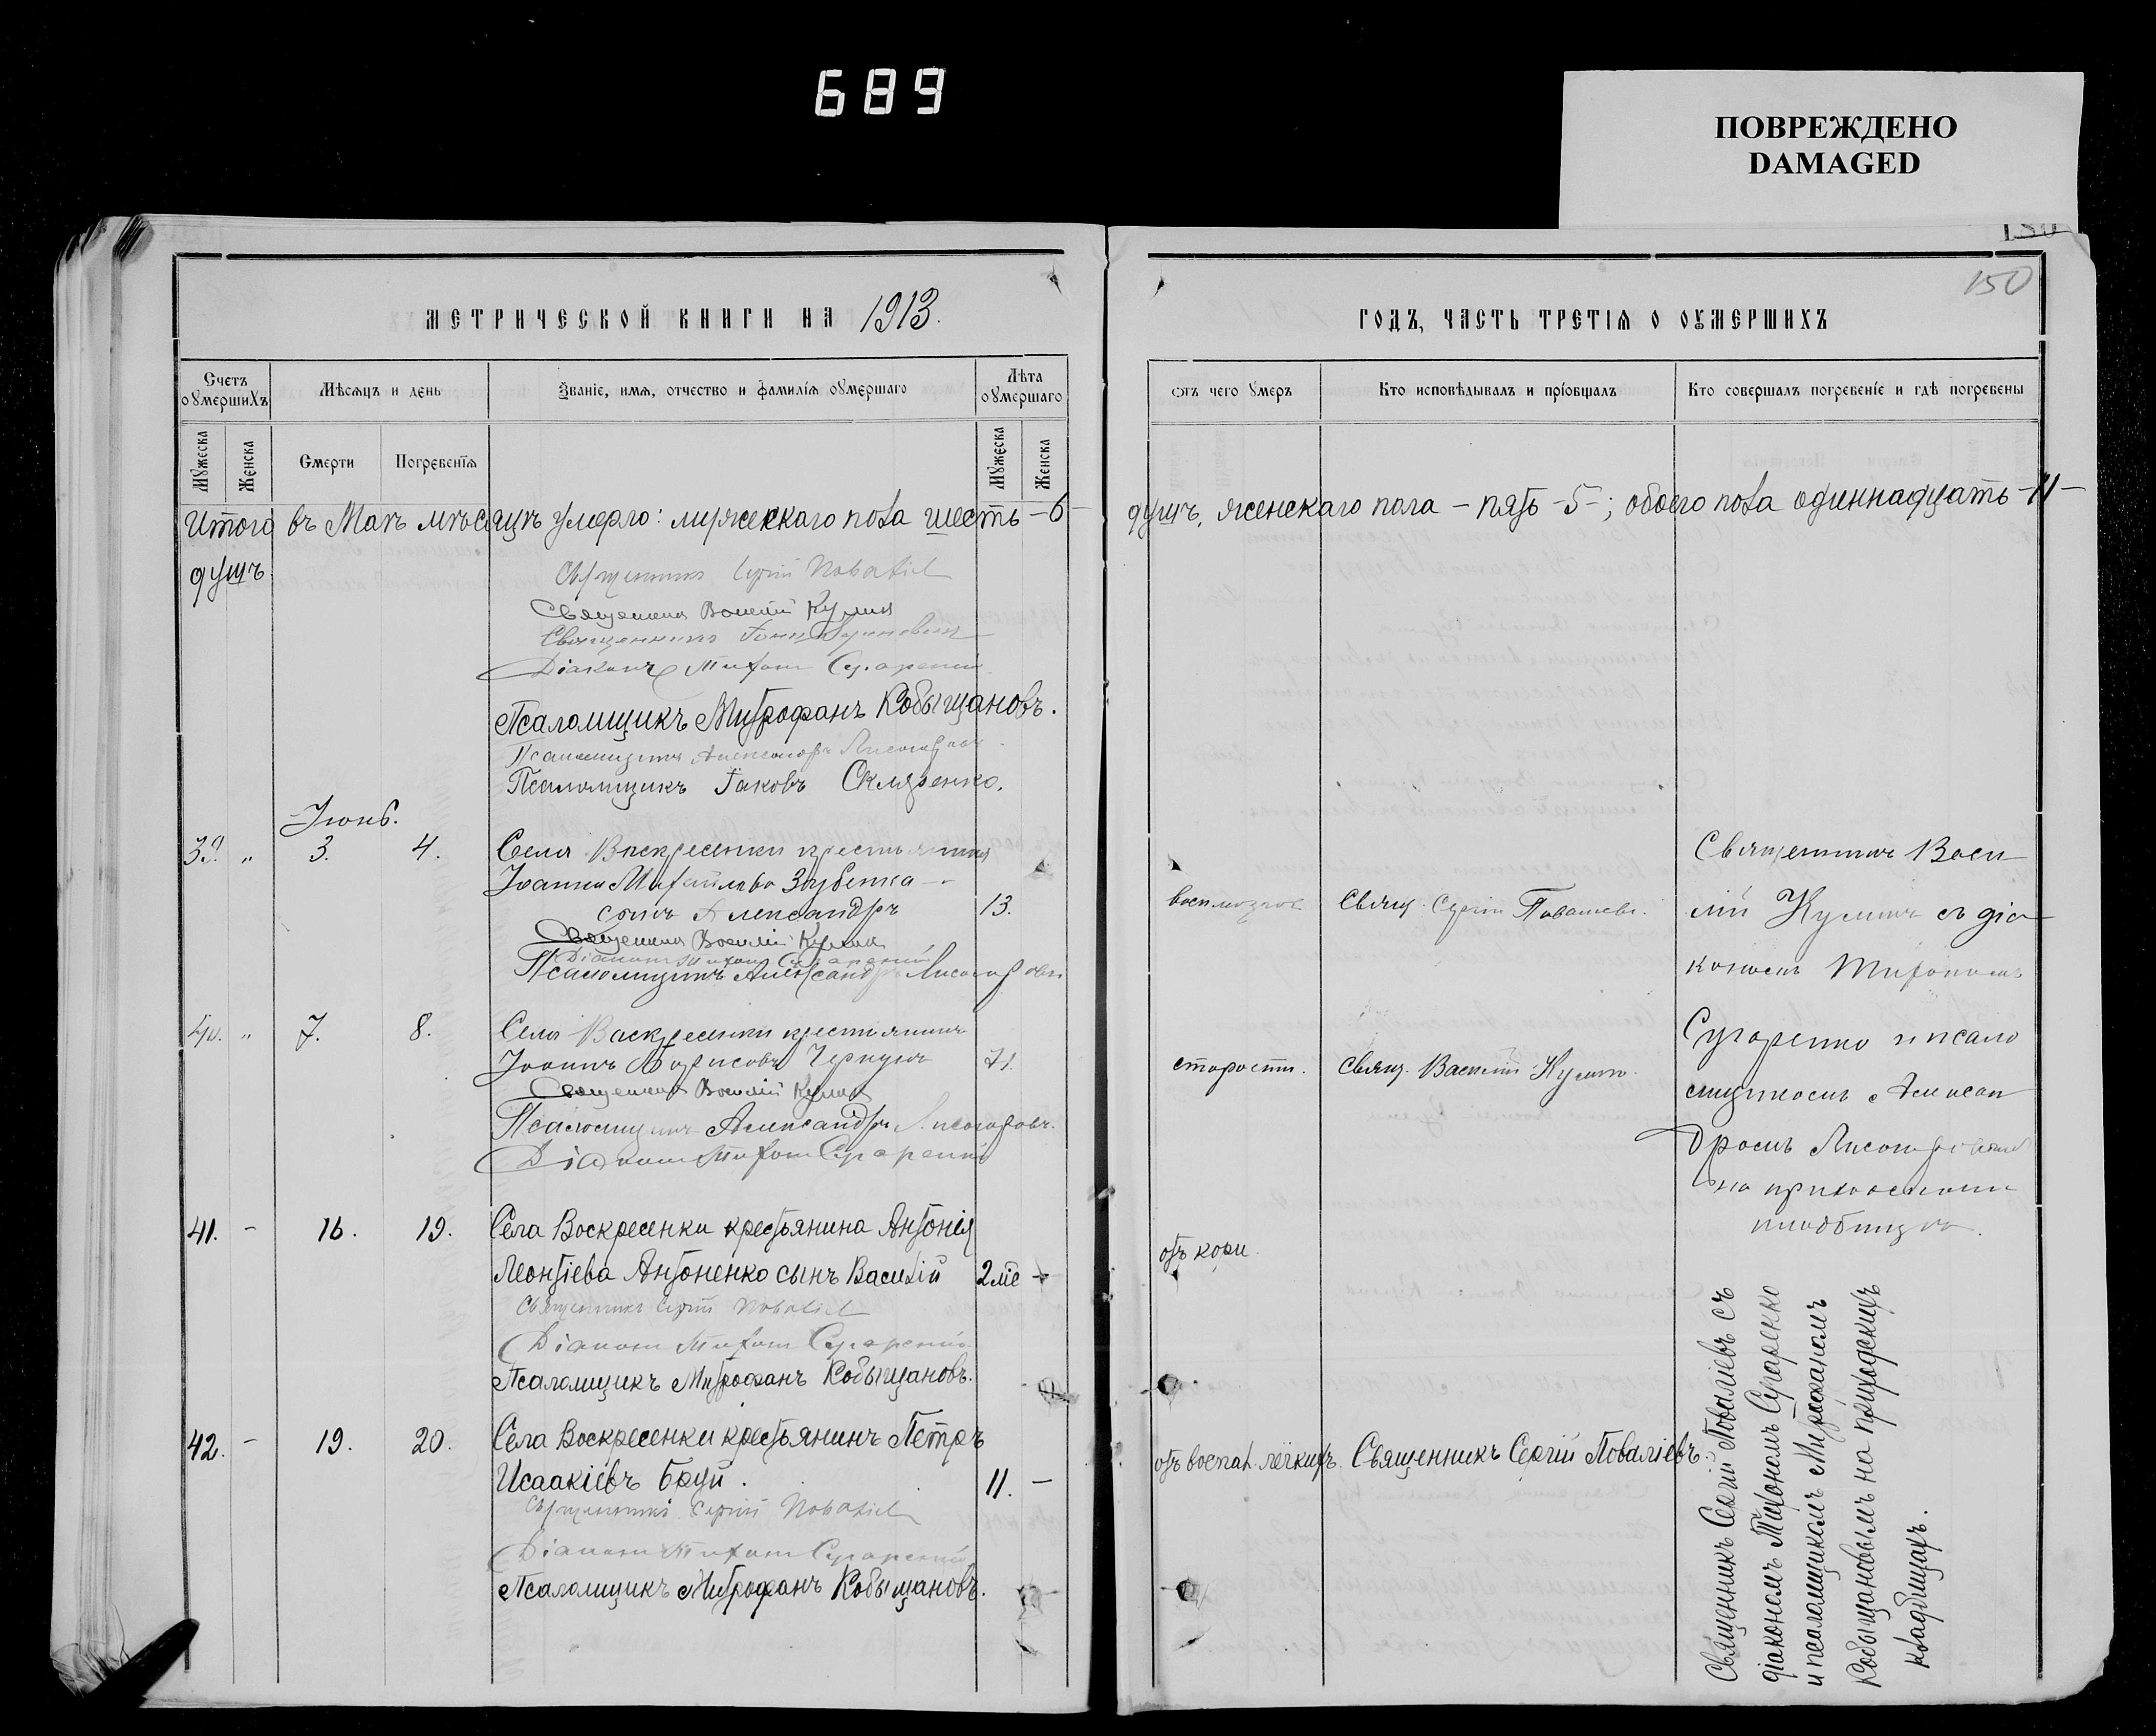 689
ПОВРЕЖДЕНО
DAMAGED
150
МЕТРИЧЕСКОЙ КНИГИ НА 1913.
Счетъ оумершихъ
Мѣсяцъ и день
Званіе, имя, отчество и фамилія оумершаго
Лѣта оумершаго
Мужеска
Женска
Смерти
Погребенїя
Мужеска
Женска
Итого въ Маѣ мѣсяцѣ умерло: мужескаго пола шесть -6-
душъ
Священникъ Сергій
Священникъ Василій Кулик
Священникъ
Діаконъ Тихонъ
Псаломщикъ Митрофанъ Кобыщановъ.
Псаломщикъ Александръ
Псаломщикъ Іаковъ Скляренко.
Іюнь.
39. " 3. 4. Села Воскресенки крестьянина
Іоанна Михайлова
сынъ Александръ 13.
Священникъ Василій Кулик
Діаконъ Тихонъ
Псаломщикъ Александръ
40. " 7. 8. Села Воскресенки крестьянинъ
Іоаннъ Борисовъ 71.
Священникъ Василій Кулик
Псаломщикъ Александръ
Діаконъ Тихонъ
41. - 16. 19. Села Воскресенки крестьянина Антонія
Леонтіева Антоненко сынъ Василій 2 -
Священникъ Сергій
Діаконъ Тихонъ
Псаломщикъ Митрофанъ Кобыщановъ.
42. - 19. 20. Села Воскресенки крестьянинъ Петръ
Исаакіевъ Бруй. 11. -
Священникъ Сергій
Діаконъ Тихонъ
Псаломщикъ Митрофанъ Кобыщановъ.
150
ГОДЪ, ЧАСТЬ ТРЕТІЯ О ОУМЕРШИХЪ
Отъ чего умеръ
Кто исповѣдывалъ и пріобщалъ
Кто совершалъ погребеніе и гдѣ погребены
душъ, женскаго пола - пять -5-; обоего пола одиннадцать -11-
Священникъ Васи
лій Куликъ съ діа
Свящ. Сергій
кономъ Тихономъ
старости. Свящ. Василій Куликъ.
и псало
мщикомъ Алексан
дромъ
на приходскомъ
кладбищѣ.
отъ кори.
отъ воспал. легкихъ. Священникъ Сергій Поваліевъ.
Священникъ Сергій Поваліевъ съ
діакономъ Тихономъ
и псаломщикомъ Митрофаномъ
Кобыщановымъ на приходскихъ
кладбищахъ.